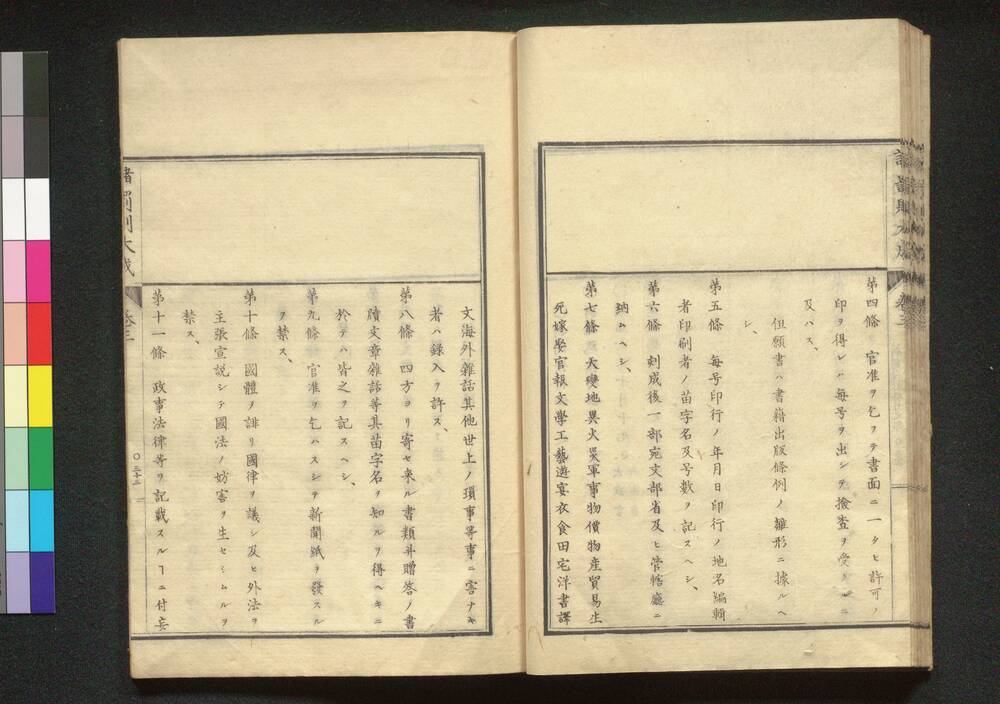 第四條　官准ヲ乞フテ書面ニ一タヒ許可ノ
印ヲ得レハ每号ヲ出シテ撿査ヲ受クルニ
及ハス、
但願書ハ書籍出版條例ノ雛形ニ據ルヘ
シ、
第五條　每号印行ノ年月日印行ノ地名編輯
者印刷者ノ苗字名及号數ヲ記スヘシ、
第六條　刻成後一部宛文部省及ヒ管轄廳ニ
納ムヘシ、
第七條　天變地異火災軍事物價物産貿易生
死嫁娶官報文學工藝遊宴衣食田宅洋書譯
文海外雜話其他世上ノ瑣事等事ニ害ナキ
者ハ錄入ヲ許ス、
第八條　四方ヨリ寄セ來ル書類幷贈答ノ書
牘文章雜話等其苗字名ヲ知ルヲ得ヘキニ
於テハ皆之ヲ記スヘシ、
第九條　官准ヲ乞ハスシテ新聞紙ヲ發スル
ヲ禁ス、
第十條　國體ヲ誹リ國律ヲ議シ及ヒ外法ヲ
主張宣説シテ國法ノ妨害ヲ生セシムルヲ
禁ス、
第十一條　政事法律等ヲ記載スルヿニ付妄
諸罰則大成
卷三
〇三十三